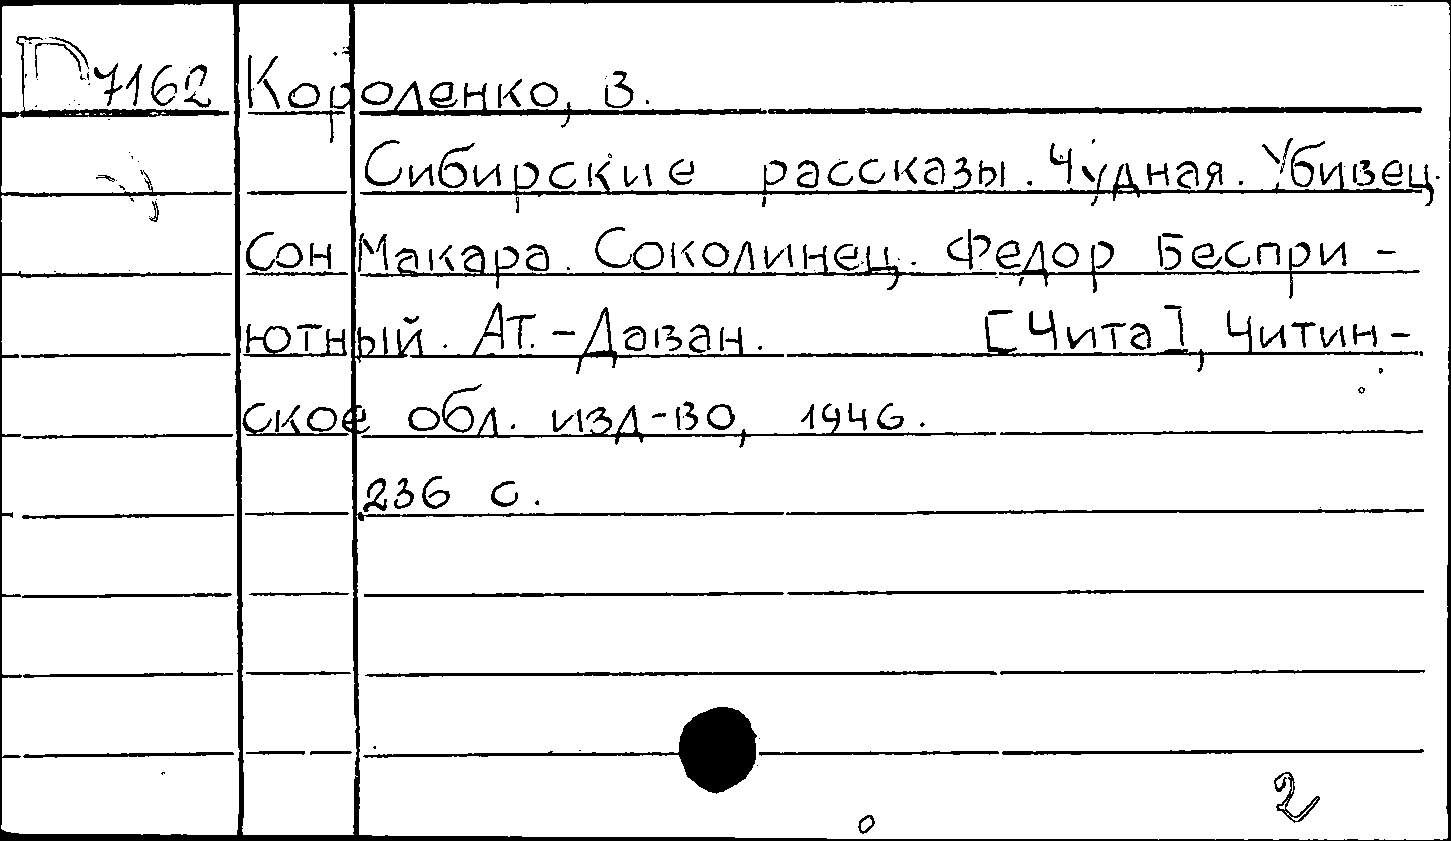 D7162 Короленко, В.
Сибирские рассказы. Чудная. Убивец.
Сон Макара. Соколинец. Федор Беспри-
ютный. АТ.-Даван. [Чита], Читин-
ское обл. изд-во, 1946.
236 с.
2